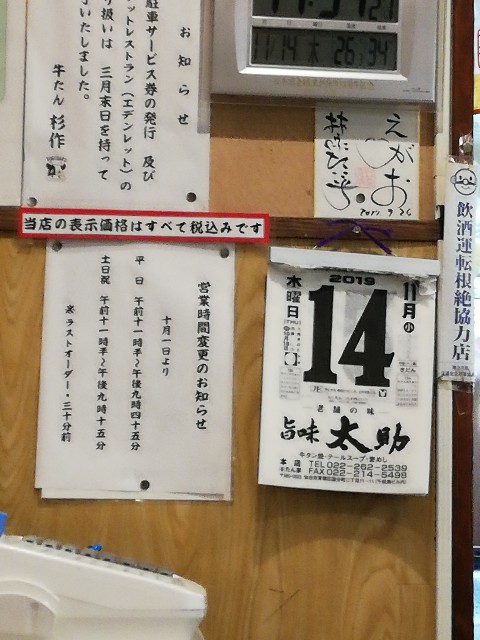 お知らせ
駐車サービス券の発行 及び
ットレストラン(エデンレット)の
り扱いは 三月末日を持って
いたしました。
牛たん 杉作
11/14 木 26 34
えがお
2017. 9. 26
当店の表示価格はすべて税込みです
営業時間変更のお知らせ
十月一日より
平 日 午前十一時半~午後九時四十五分
土日祝 午前十一時半~午後九時十五分
※ラストオーダー・三十分前
2019
11月小
14
木曜日
老舗の味
旨味 太助
牛タン焼・テールスープ・麦めし
本店 TEL 022-262-2539
FAX 022-214-5498
飲酒運転根絶協力店